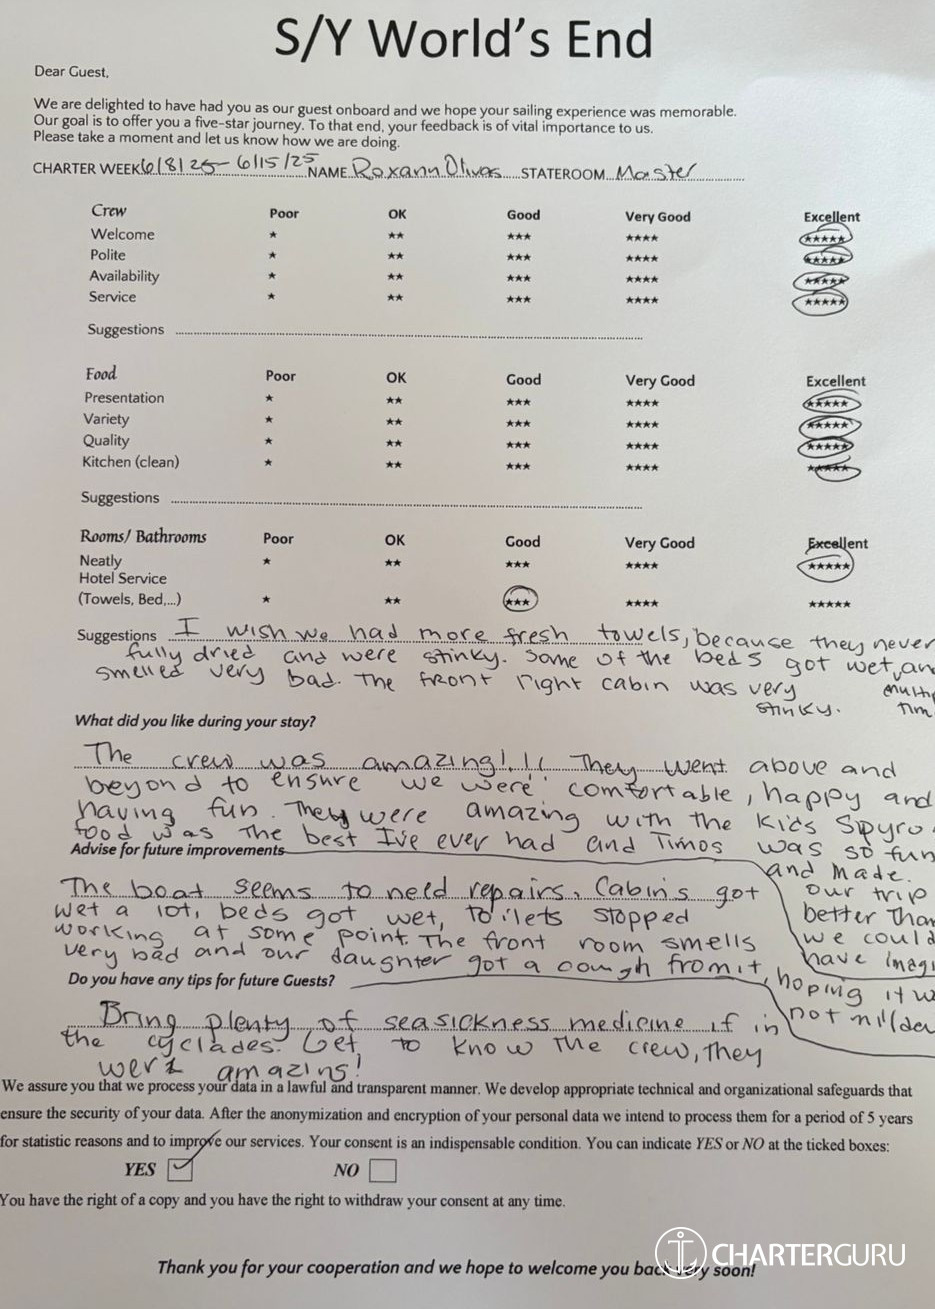 S/Y World's End
Dear Guest,
We are delighted to have had you as our guest onboard and we hope your sailing experience was memorable.
Our goal is to offer you a five-star journey. To that end, your feedback is of vital importance to us.
Please take a moment and let us know how we are doing.
CHARTER WEEK 6/8/25 - 6/15/25 NAME Roxann Olivas STATEROOM Master
Crew Poor OK Good Very Good Excellent
Welcome ★ ★★ ★★★ ★★★★ ★★★★★
Polite ★ ★★ ★★★ ★★★★ ★★★★★
Availability ★ ★★ ★★★ ★★★★ ★★★★★
Service ★ ★★ ★★★ ★★★★ ★★★★★
Suggestions
Food Poor OK Good Very Good Excellent
Presentation ★ ★★ ★★★ ★★★★ ★★★★★
Variety ★ ★★ ★★★ ★★★★ ★★★★★
Quality ★ ★★ ★★★ ★★★★ ★★★★★
Kitchen (clean) ★ ★★ ★★★ ★★★★ ★★★★★
Suggestions
Rooms/ Bathrooms Poor OK Good Very Good Excellent
Neatly ★ ★★ ★★★ ★★★★ ★★★★★
Hotel Service
(Towels, Bed,...) ★ ★★ ★★★ ★★★★ ★★★★★
Suggestions I wish we had more fresh towels, because they never
fully dried and were stinky. Some of the beds got wet, an
smelled very bad. The front right cabin was very
stinky.
What did you like during your stay?
The crew was amazing!!! They went above and
beyond to ensure we were comfortable, happy and
having fun. They were amazing with the kids Spyro
food was the best I've ever had and Timos was so fun
Advise for future improvements
and made
our trip
better than
we could
have imagi
The boat seems to need repairs. Cabins got
wet a lot, beds got wet, toilets stopped
working at some point. The front room smells
very bad and our daughter got a cough from it,
hoping it w
not mildew
Do you have any tips for future Guests?
Bring plenty of seasickness medicine if in
the cyclades. Get to know the crew, they
were amazing!
We assure you that we process your data in a lawful and transparent manner. We develop appropriate technical and organizational safeguards that
ensure the security of your data. After the anonymization and encryption of your personal data we intend to process them for a period of 5 years
for statistic reasons and to improve our services. Your consent is an indispensable condition. You can indicate YES or NO at the ticked boxes:
YES NO
You have the right of a copy and you have the right to withdraw your consent at any time.
CHARTERGURU
Thank you for your cooperation and we hope to welcome you back very soon!